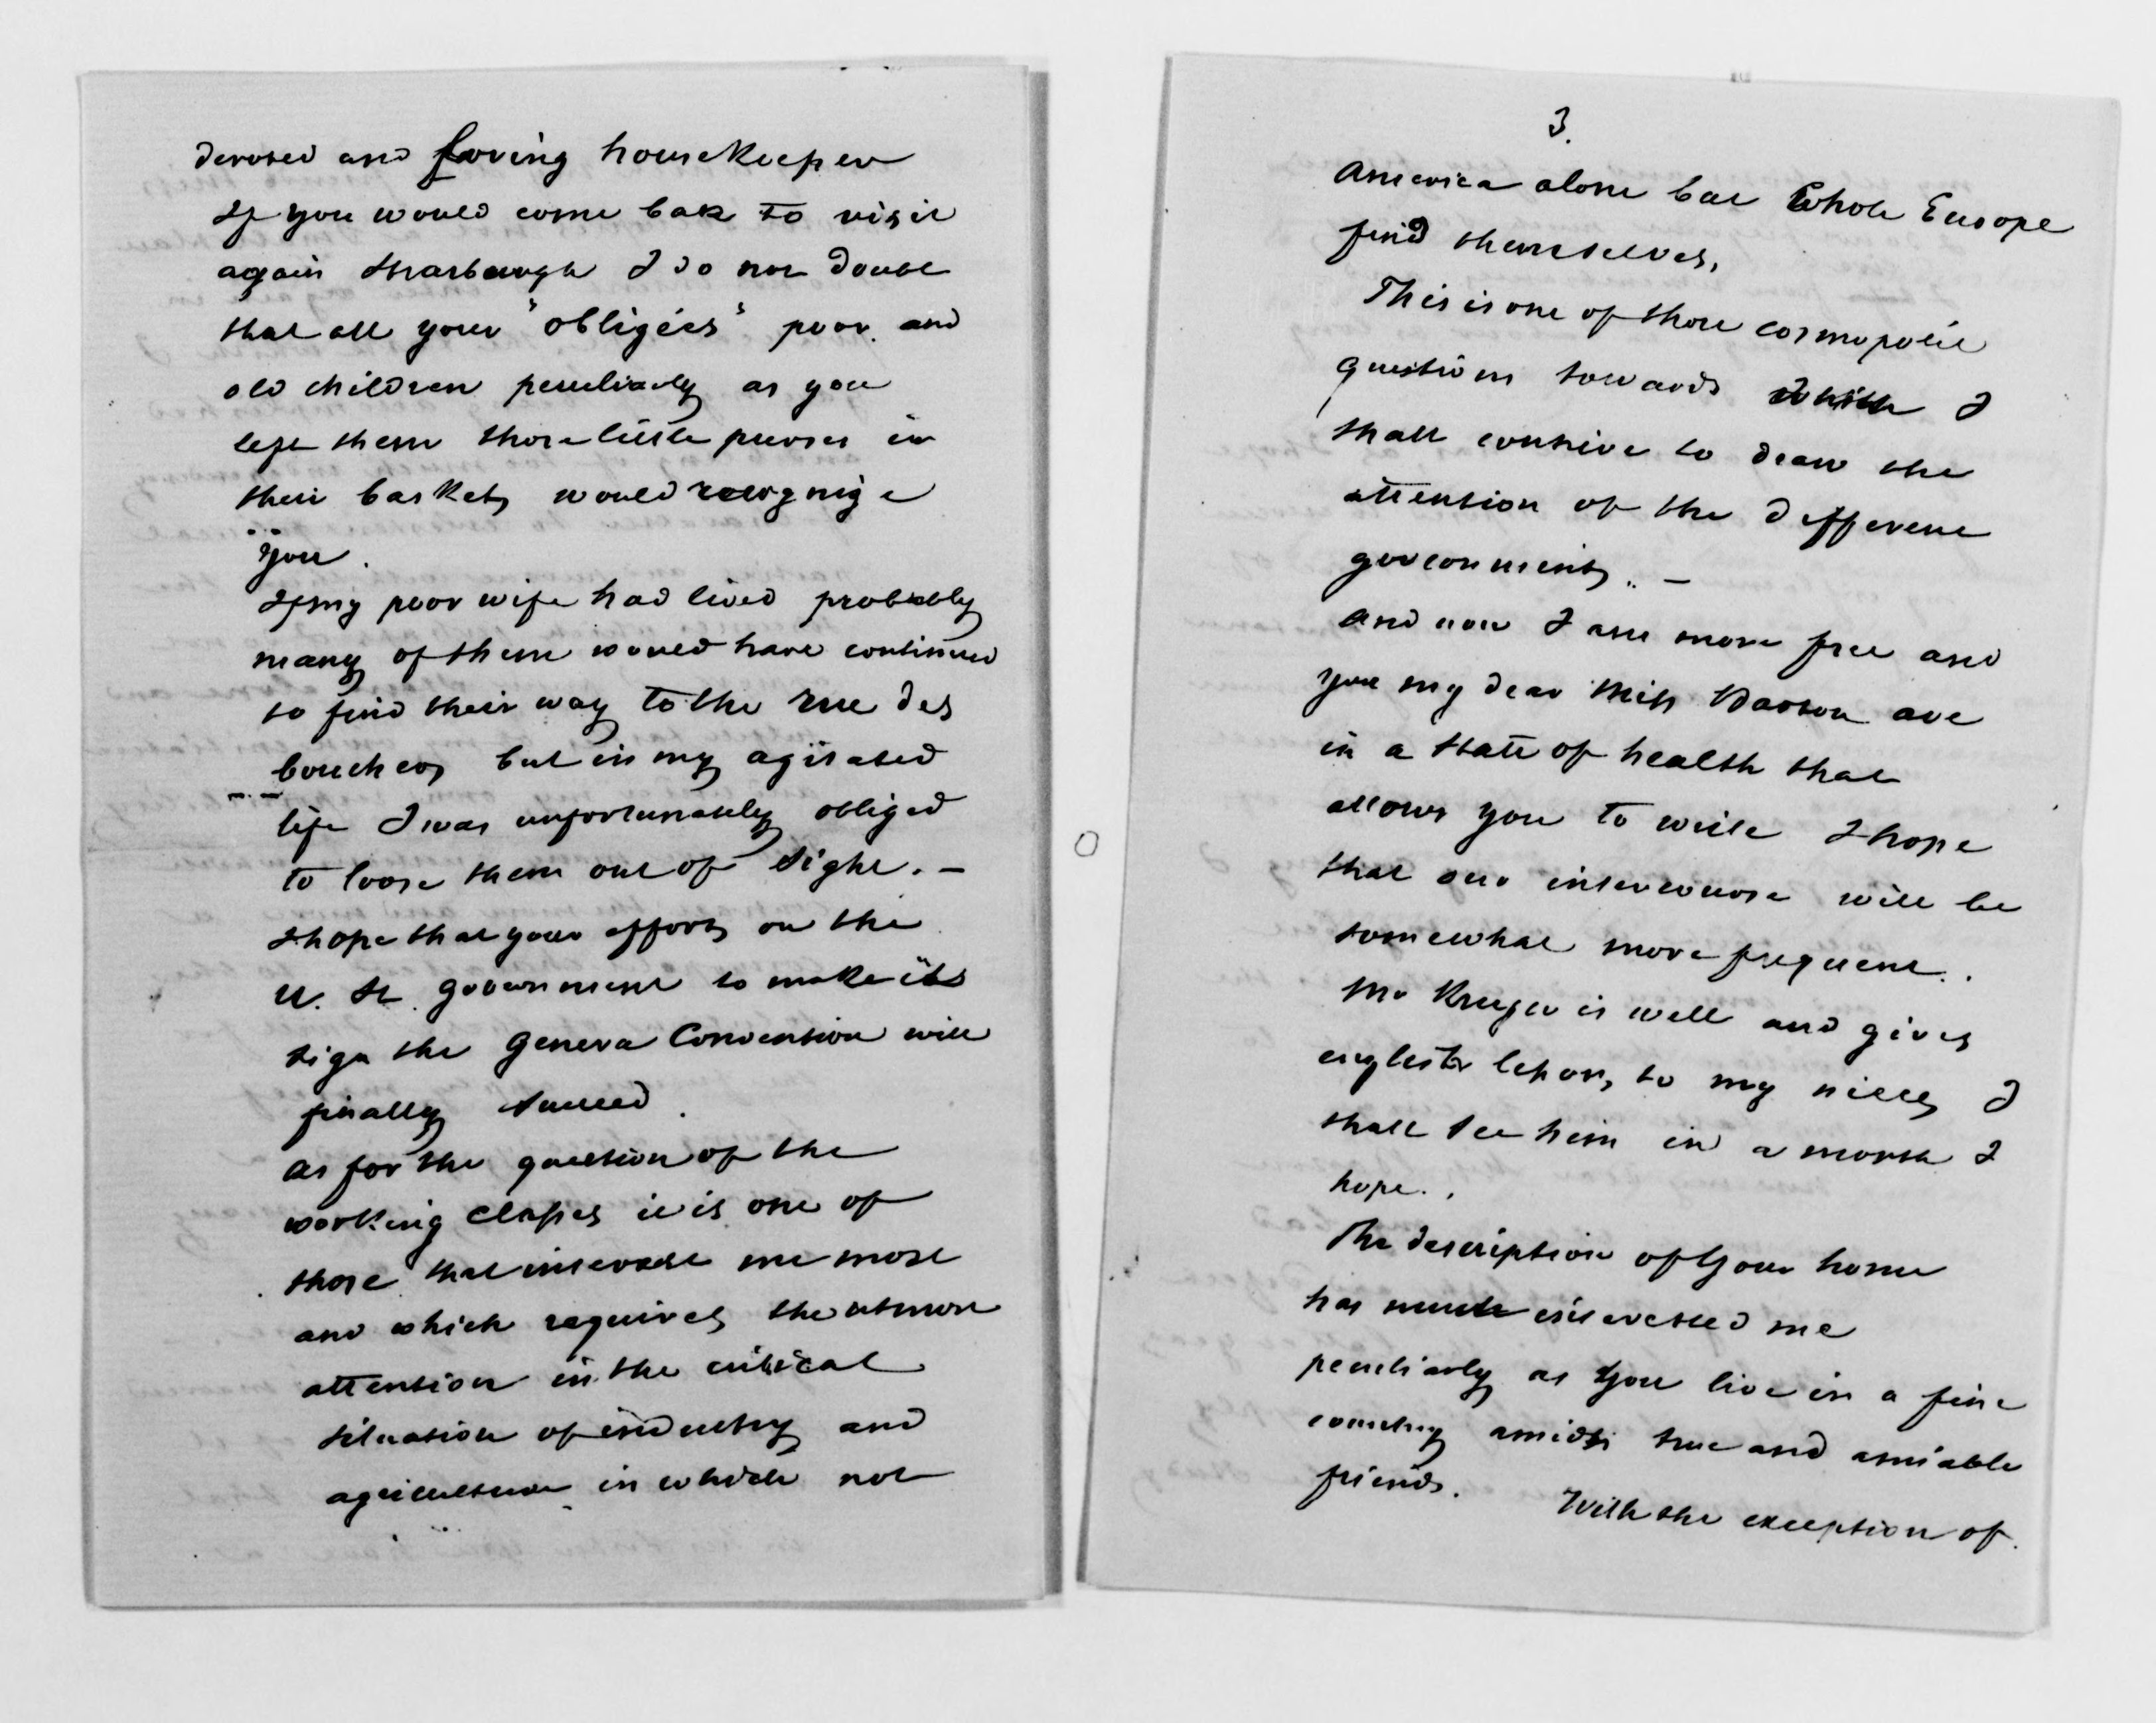 devoted and loving housekeeper
If you would come bak to visit
again Strasburgh I do not doubt
that all your "obligées" poor and
old children peculiarly as you
left them those little purses in
their baskets would recognize
you.
If my poor wife had lived probably
many of them would have continued
to find their way to the rue des
bouchers but in my agitated
life I was unfortunately obliged
to loose them out of sight. —
I hope that your efforts on the
U. St. government to make its
sign the Geneva Convention will
finally succeed.
As for the question of the
working classes it is one of
those that interest me most
and which requires the utmost
attention in the critical
situation of industry and
agriculture in which not
3.
America alone but whole Europe
find themselves.
This is one of those cosmopolit
questions towards which I
shall contrive to draw the
attention of the different
governments. —
And now I am more free and
you my dear Miss Barton are
in a state of health that
allows you to write I hope
that our intercourse will be
somewhat more frequent.
Mr Kruger is well and gives
english lessons to my nieces I
shall see him in a month I
hope.
The description of your home
has much interested me
peculiarly as you live in a fine
country amidst true and amiable
friends.
With the exception of